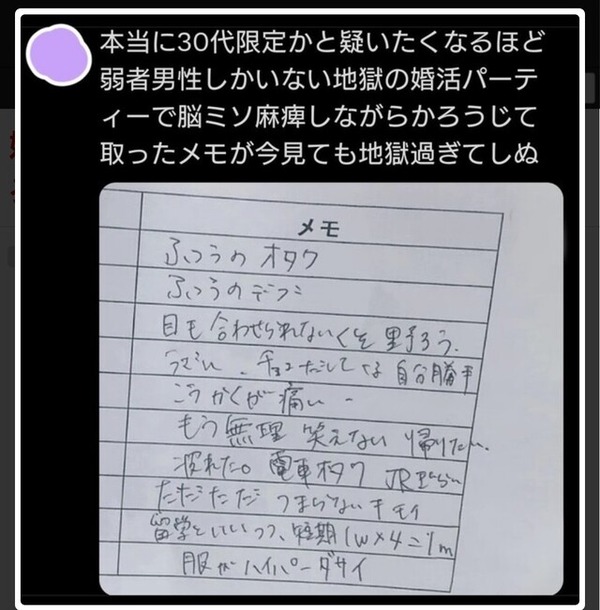 本当に30代限定かと疑いたくなるほど
弱者男性しかいない地獄の婚活パーテ
ィーで脳ミソ麻痺しながらかろうじて
取ったメモが今見ても地獄過ぎてしぬ
メモ
ふつうのオタク
ふつうのデブ
目も合わせられないくそ野ろう.
自分勝手
こうかくが痛い
もう無理 笑えない 帰りたい.
疲れた。電車オタク JR
ただただ つまらない キモイ
留学といいつつ、短期1w×4=1m
服がハイパーダサイ